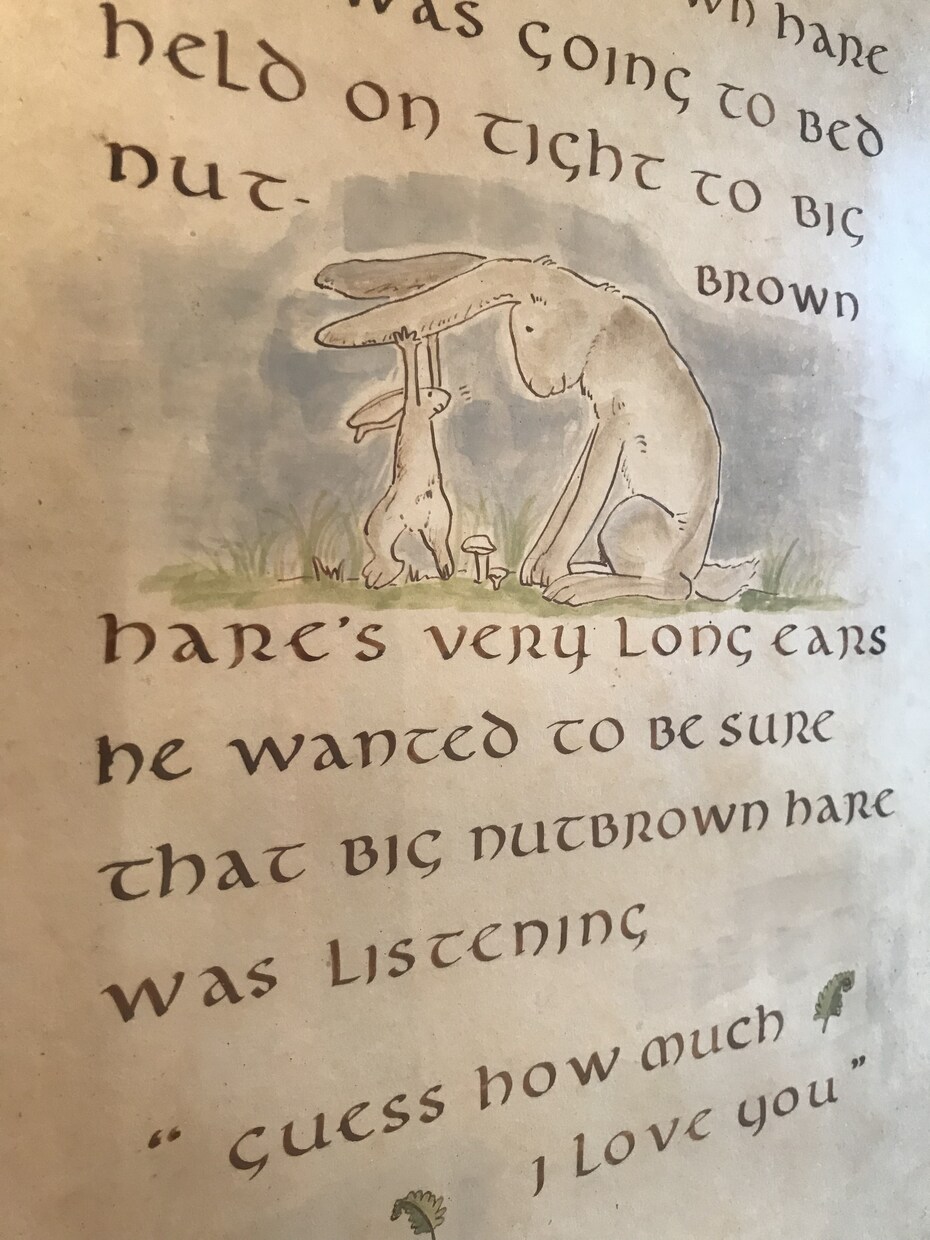 hare
was going to bed
held on tight to big
nut-
brown
hare's very long ears
he wanted to be sure
that big nutbrown hare
was listening
“ guess how much
I love you”